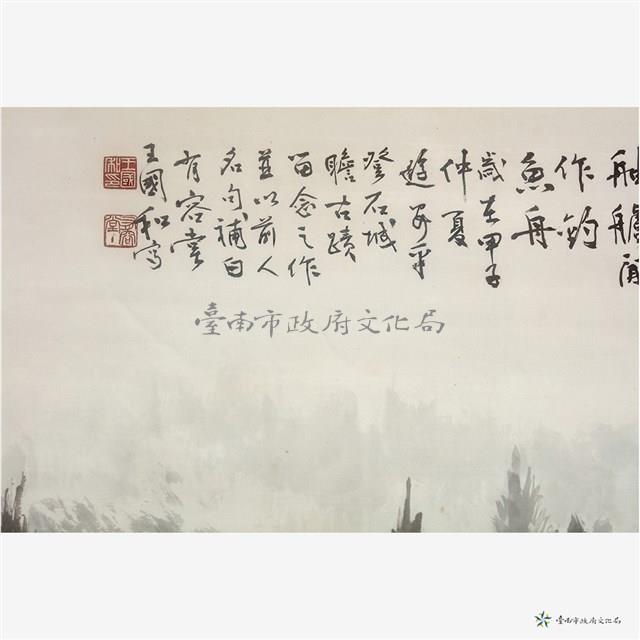 舳艫閒
作釣
魚舟
歲在甲子
仲夏
遊安平
登石城
瞻古蹟
留念之作
並以前人
名句補白
有容堂
王國和寫
臺南市政府文化局
臺南市政府文化局